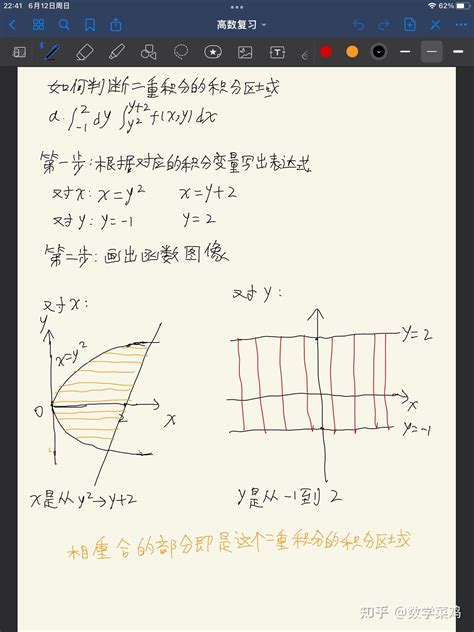 22:41 6月12日周日
62%
高数复习
如何判断二重积分的积分区域
a. ∫₋₁² dy ∫_{y²}^{y+2} f(x,y) dx
第一步:根据对应的积分变量写出表达式
对x: x=y² x=y+2
对y: y=-1 y=2
第二步:画出函数图像
对x:
对y:
y
x=y²
y=2
0
2
x
x
y=-1
x是从y²→y+2
y是从-1到2
相重合的部分即是这个二重积分的积分区域
知乎 @数学菜鸡